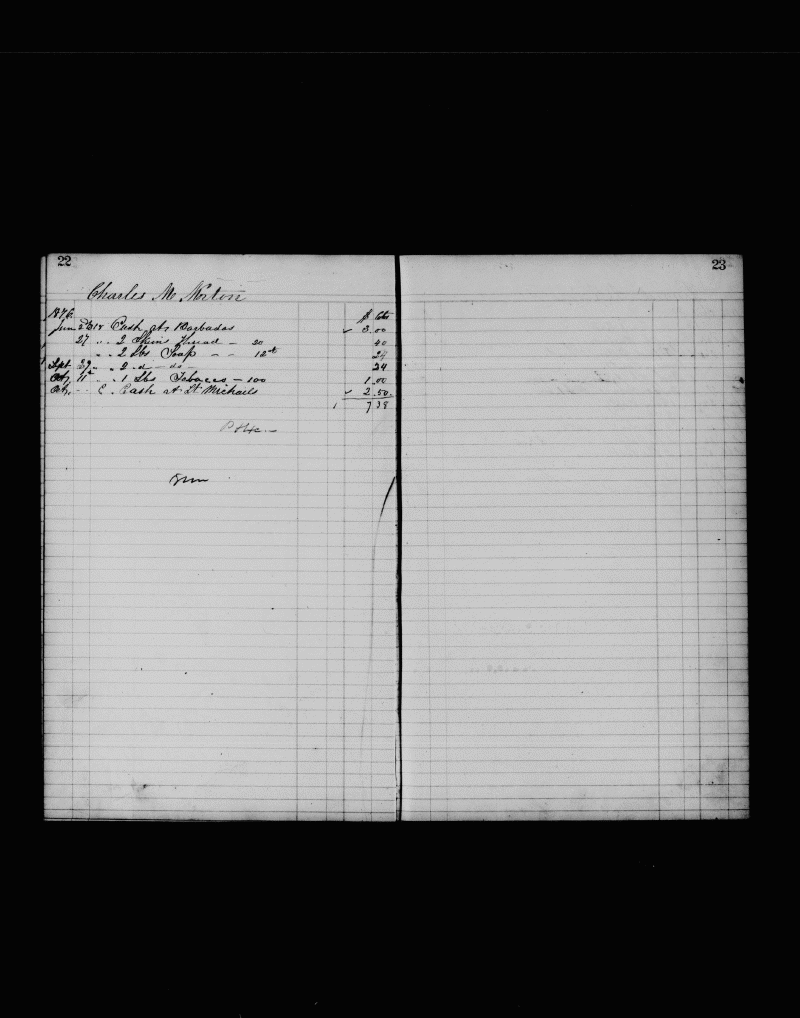 22
23
Charles M. Norton
1876
$ Cts
June Cash at Barbadas 3.00
27 " 2 Skeins Thread - 20 40
" " 2 lbs Soap - - 12 24
Sept. " 2 " do - 24
Oct, 11 " 1 lbs Tobacco - 100 1.00
Oct, - - Cash at St Michaels 2.50.
7 38